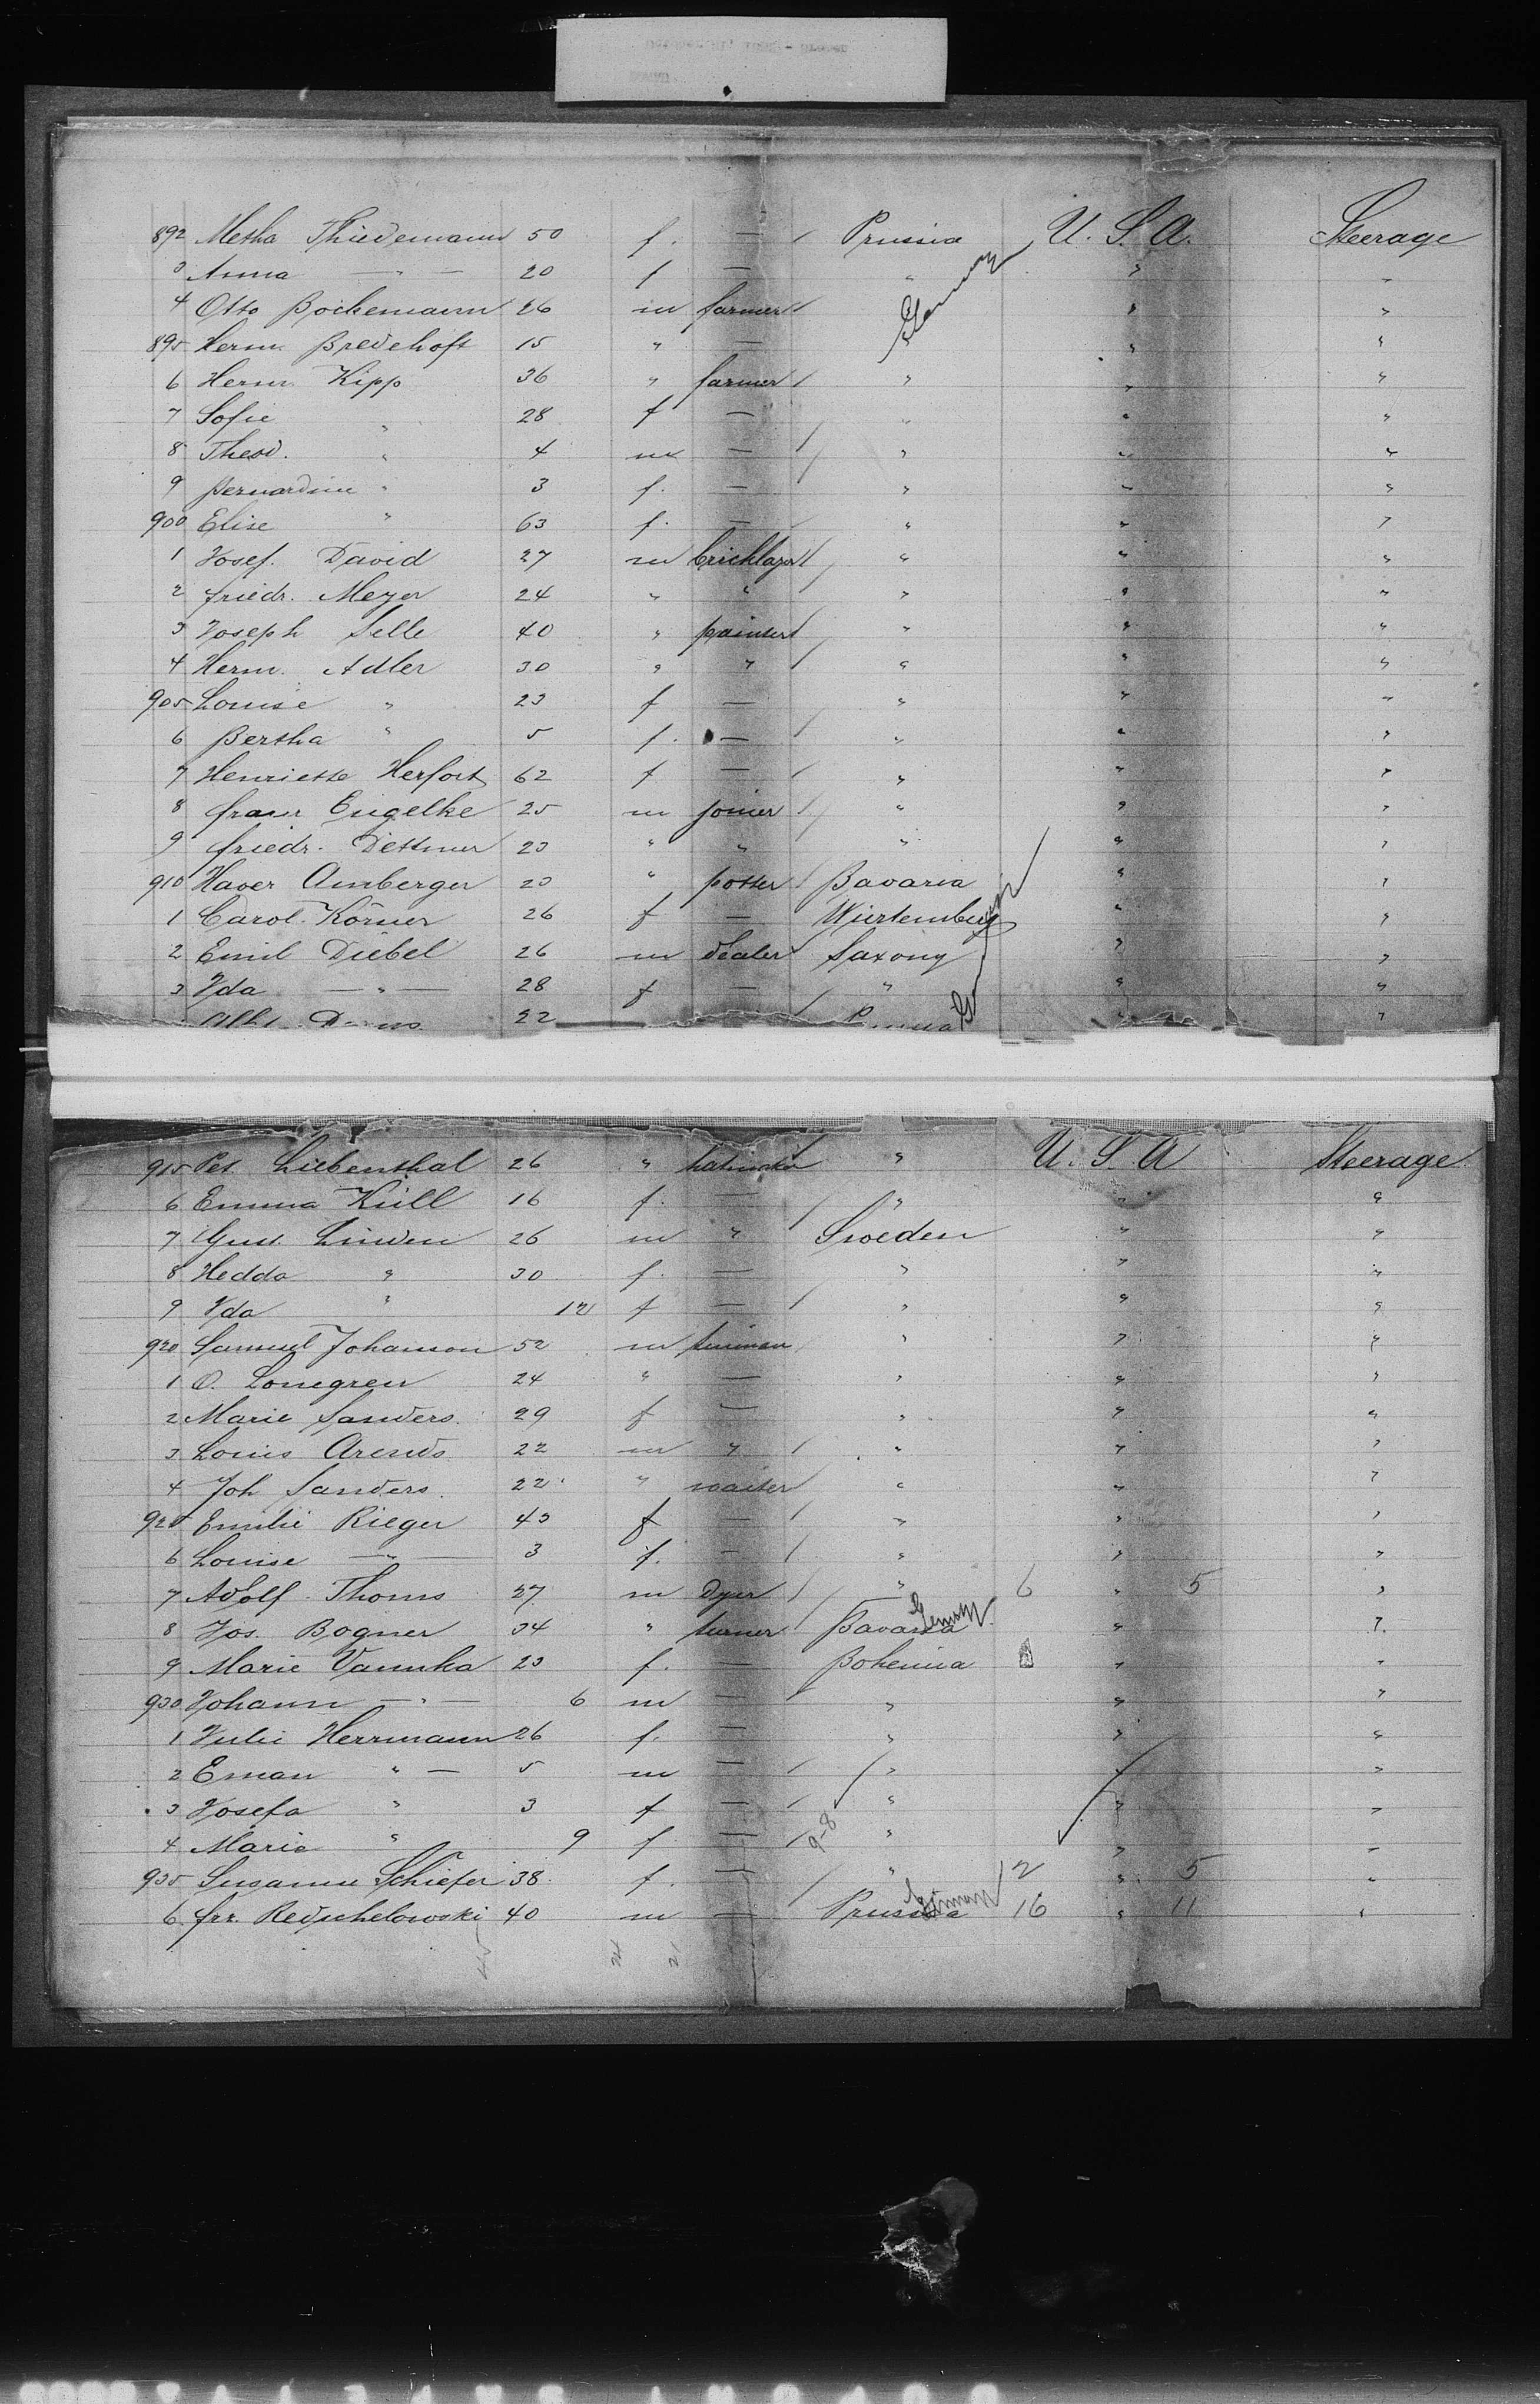 892 Metha Thiedemann 50 f. — Prussia U. S. A. Steerage
3 Anna — " — 20 f — " " "
4 Otto Bockemann 26 m farmer " " "
895 Herm. Bredehoft 15 " — " " "
6 Herm. Kipp 36 " farmer " " "
7 Sofie " 28 f — " " "
8 Theod. " 4 m — " " "
9 Bernardine " 3 f. — " " "
900 Elise " 63 f. — " " "
1 Josef. David 27 m bricklayer " " "
2 Friedr. Meyer 24 " " " " "
3 Joseph Selle 40 " painter " " "
4 Herm. Adler 30 " " " " "
905 Louise " 23 f — " " "
6 Bertha " 5 f. — " " "
7 Henriette Herfort 62 f — " " "
8 Franz Engelke 25 m joiner " " "
9 Friedr. Dettmer 23 " " " " "
910 Xaver Amberger 23 " potter Bavaria " "
1 Carol. Körner 26 f — Würtemberg " "
2 Emil Diebel 26 m dealer Saxony " "
3 Ida — " — 28 f — " " "
22 " "
915 Pet. Liebenthal 26 " " U. S. A Steerage
6 Emma Küll 16 f. — " " "
7 Gust. Linden 26 m " Sweden " "
8 Hedda " 30 f. — " " "
9 Ida " 12 f — " " "
920 Samuel Johanson 52 m " " "
1 O. Lonegren 24 " — " " "
2 Marie Sanders 29 f — " " "
3 Louis Arends 22 m " " " "
4 Joh Sanders 22 " waiter " " "
925 Emilie Rieger 43 f — " " "
6 Louise — " — 3 f. — " " "
7 Adolf Thoms 27 m dyer " 6 " 5 "
8 Jos. Bogner 34 " turner Bavaria " "
9 Marie Vannka 23 f. — Bohemia " "
930 Johann — " — 6 m — " " "
1 Julie Herrmann 26 f. — " " "
2 Eman " — 5 m — " " "
3 Josefa " 3 f — " " "
4 Marie " 9 f — 9-8 " " "
935 Susanne Schiefer 38 f. — " 2 " 5 "
6 Frz. Redschelowski 40 m — Prussia German 16 " 11 "